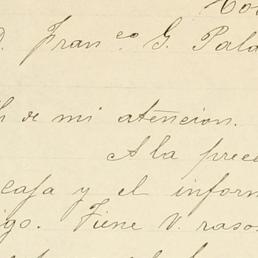 D. Franco. G. Pala
de mi atencion.
A la prece
caja y el inform
igo. Tiene V. raso